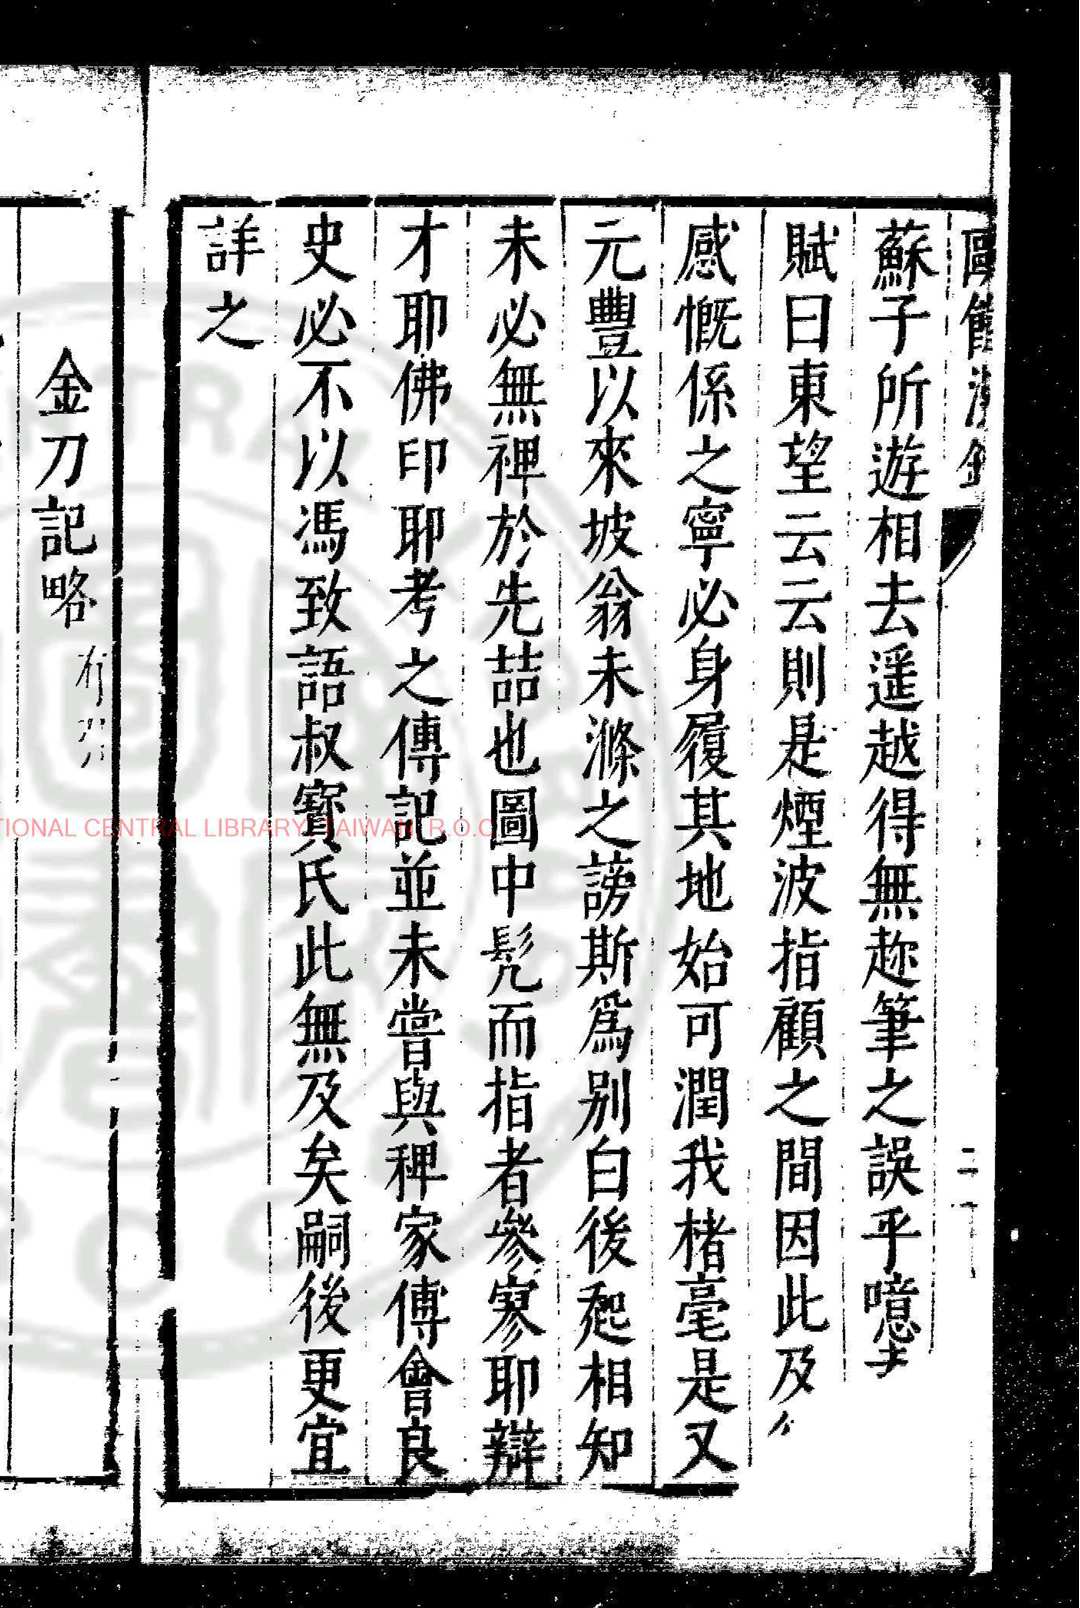 蘇子所遊相去遥越得無趂筆之誤乎噫
賦曰東望云云則是煙波指顧之間因此及
感慨係之寧必身履其地始可潤我楮毫是又
元豐以來坡翁未滌之謗斯爲别白後起相知
未必無裨於先喆也圖中髡而指者參寥耶辯
才耶佛印耶考之傳記並未嘗與稗家傅會良
史必不以馮致語叔寳氏此無及矣嗣後更宜
詳之
金刀記略
NATIONAL CENTRAL LIBRARY, TAIWAN, R.O.C